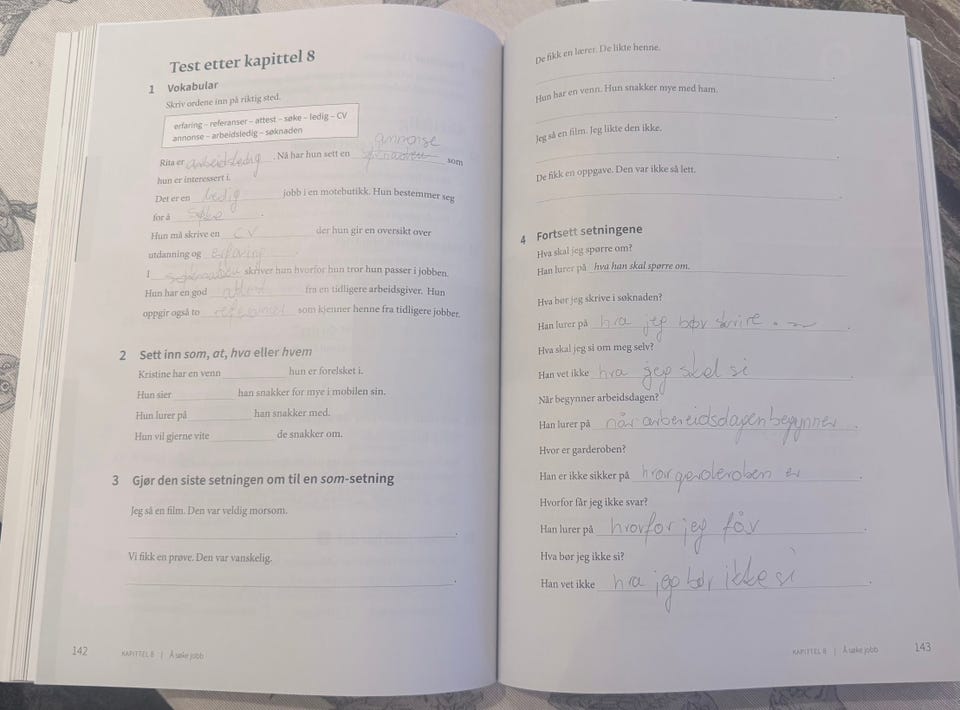 Test etter kapittel 8
1 Vokabular
Skriv ordene inn på riktig sted.
erfaring – referanser – attest – søke – ledig – CV
annonse – arbeidsledig – søknaden
annonse
Rita er arbeidsledig. Nå har hun sett en søknaden som
hun er interessert i.
Det er en ledig jobb i en motebutikk. Hun bestemmer seg
for å søke.
Hun må skrive en CV der hun gir en oversikt over
utdanning og erfaring.
I søknaden skriver hun hvorfor hun tror hun passer i jobben.
Hun har en god attest fra en tidligere arbeidsgiver. Hun
oppgir også to referanser som kjenner henne fra tidligere jobber.
2 Sett inn som, at, hva eller hvem
Kristine har en venn hun er forelsket i.
Hun sier han snakker for mye i mobilen sin.
Hun lurer på han snakker med.
Hun vil gjerne vite de snakker om.
3 Gjør den siste setningen om til en som-setning
Jeg så en film. Den var veldig morsom.
Vi fikk en prøve. Den var vanskelig.
142 KAPITTEL 8 | Å søke jobb
De fikk en lærer. De likte henne.
Hun har en venn. Hun snakker mye med ham.
Jeg så en film. Jeg likte den ikke.
De fikk en oppgave. Den var ikke så lett.
4 Fortsett setningene
Hva skal jeg spørre om?
Han lurer på hva han skal spørre om.
Hva bør jeg skrive i søknaden?
Han lurer på hva jeg bør skrive.
Hva skal jeg si om meg selv?
Han vet ikke hva jeg skal si
Når begynner arbeidsdagen?
Han lurer på når arbereidsdagen begynner.
Hvor er garderoben?
Han er ikke sikker på hvor garderoben er.
Hvorfor får jeg ikke svar?
Han lurer på hvorfor jeg får.
Hva bør jeg ikke si?
Han vet ikke hva jeg bør ikke si.
KAPITTEL 8 | Å søke jobb 143